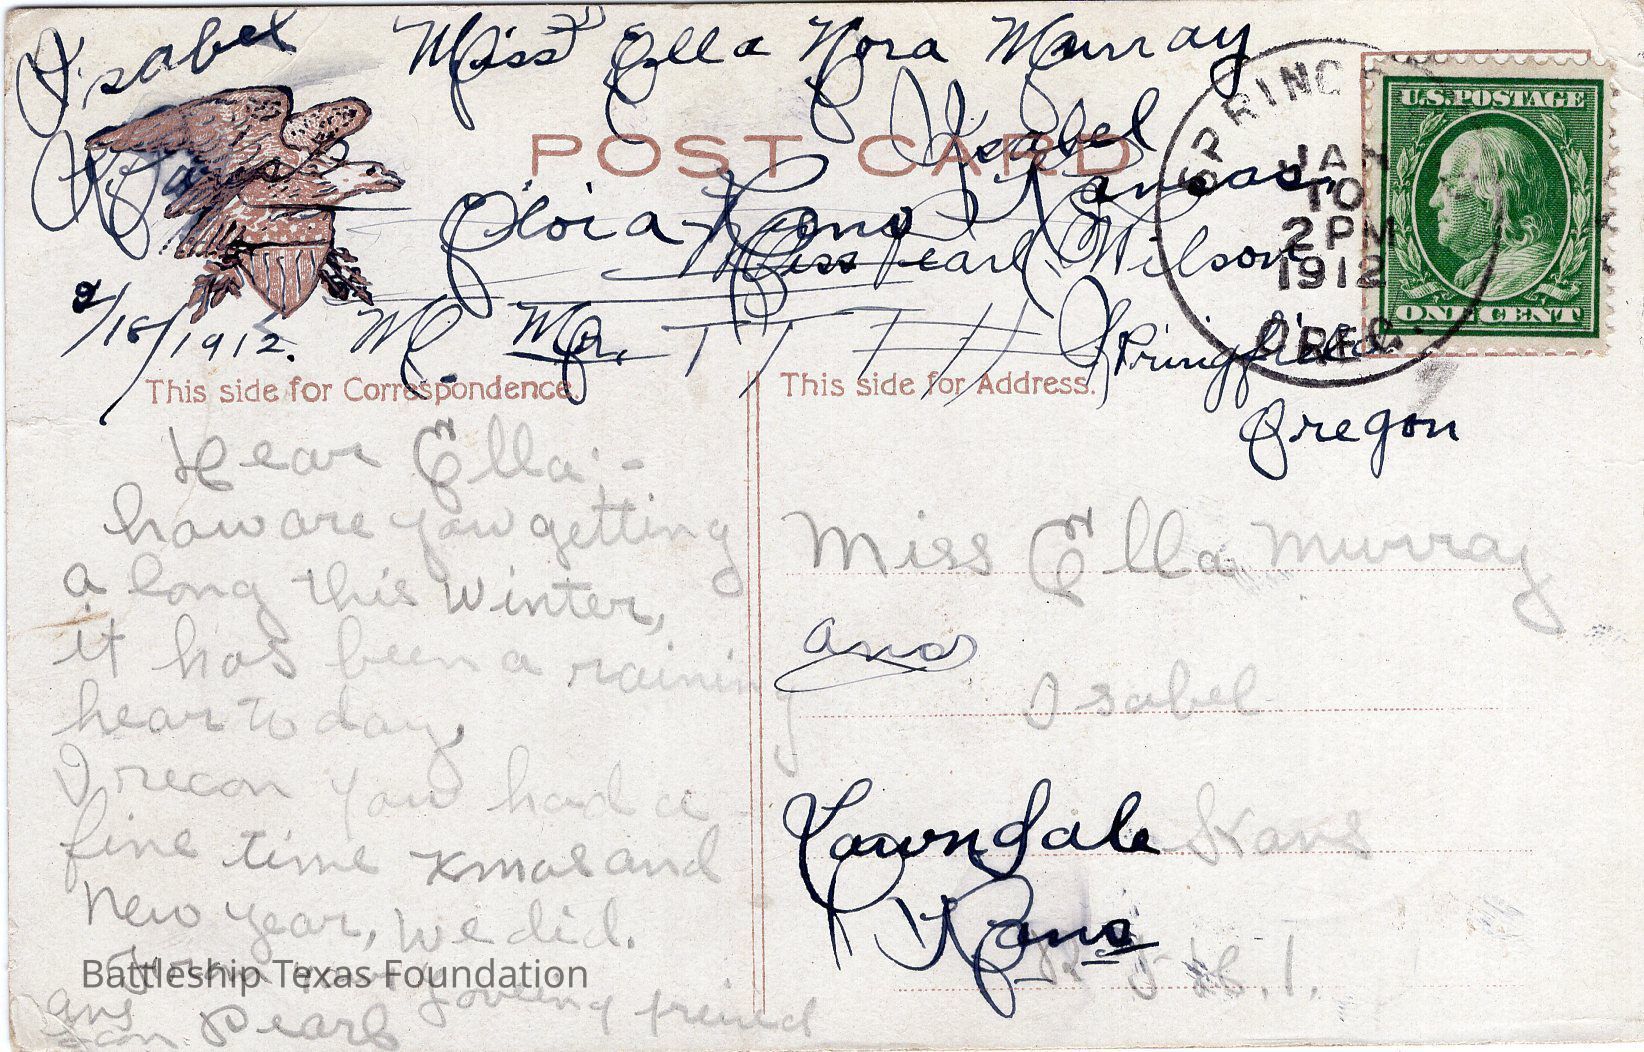 Isabel Miss Ella Nora Murray
POST CARD
Isabel
Kansas.
Miss Pearl Wilson
Springfield
Oregon
SPRING
JAN
10
2 PM
1912
OREG.
U.S. POSTAGE
ONE CENT
2/18/1912.
This side for Correspondence.
This side for Address.
Dear Ella:-
how are you getting
a long this winter,
it has been a raining
hear to day,
I recon you had a
fine time xmas and
New year, we did.
from your
loveing freind
ans
soon. Pearl
Miss Ella Murray
and
Isabel
Kans
Lawndale
Kans
Battleship Texas Foundation